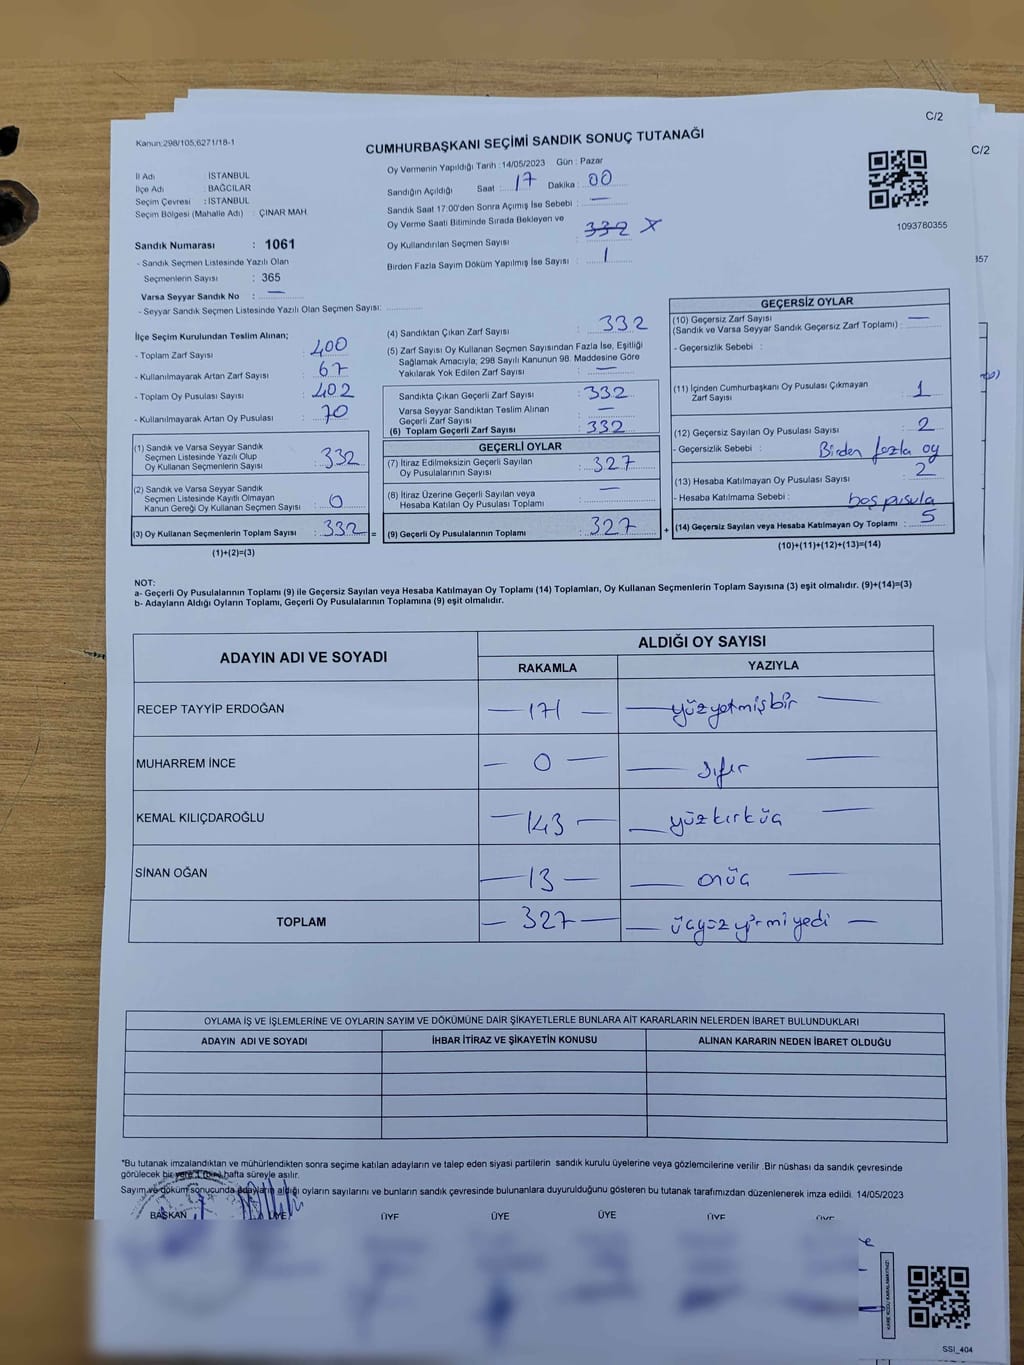 C/2
C/2
Kanun:298/105,6271/18-1
CUMHURBAŞKANI SEÇİMİ SANDIK SONUÇ TUTANAĞI
İl Adı : İSTANBUL
İlçe Adı : BAĞCILAR
Seçim Çevresi : İSTANBUL
Seçim Bölgesi (Mahalle Adı) : ÇINAR MAH
Oy Vermenin Yapıldığı Tarih : 14/05/2023 Gün : Pazar
Sandığın Açıldığı Saat : 17 Dakika : 00
Sandık Saat 17:00'den Sonra Açımış İse Sebebi : —
Oy Verme Saati Bitiminde Sırada Bekleyen ve
Oy Kullandırılan Seçmen Sayısı : 332 X
Birden Fazla Sayım Döküm Yapılmış İse Sayısı : 1
1093780355
357
Sandık Numarası : 1061
- Sandık Seçmen Listesinde Yazılı Olan
Seçmenlerin Sayısı : 365
Varsa Seyyar Sandık No : —
- Seyyar Sandık Seçmen Listesinde Yazılı Olan Seçmen Sayısı:
İlçe Seçim Kurulundan Teslim Alınan;
- Toplam Zarf Sayısı : 400
- Kullanılmayarak Artan Zarf Sayısı : 67
- Toplam Oy Pusulası Sayısı : 402
- Kullanılmayarak Artan Oy Pusulası : 70
(1) Sandık ve Varsa Seyyar Sandık
Seçmen Listesinde Yazılı Olup
Oy Kullanan Seçmenlerin Sayısı : 332
(2) Sandık ve Varsa Seyyar Sandık
Seçmen Listesinde Kayıtlı Olmayan
Kanun Gereği Oy Kullanan Seçmen Sayısı : 0
(3) Oy Kullanan Seçmenlerin Toplam Sayısı : 332 =
(1)+(2)=(3)
(4) Sandıktan Çıkan Zarf Sayısı : 332
(5) Zarf Sayısı Oy Kullanan Seçmen Sayısından Fazla İse, Eşitliği
Sağlamak Amacıyla; 298 Sayılı Kanunun 98. Maddesine Göre
Yakılarak Yok Edilen Zarf Sayısı : —
Sandıkta Çıkan Geçerli Zarf Sayısı : 332
Varsa Seyyar Sandıktan Teslim Alınan
Geçerli Zarf Sayısı : —
(6) Toplam Geçerli Zarf Sayısı : 332
GEÇERLİ OYLAR
(7) İtiraz Edilmeksizin Geçerli Sayılan
Oy Pusulalarının Sayısı : 327
(8) İtiraz Üzerine Geçerli Sayılan veya
Hesaba Katılan Oy Pusulası Toplamı : —
(9) Geçerli Oy Pusulalarının Toplamı : 327 +
GEÇERSİZ OYLAR
(10) Geçersiz Zarf Sayısı
(Sandık ve Varsa Seyyar Sandık Geçersiz Zarf Toplamı) : —
- Geçersizlik Sebebi :
(11) İçinden Cumhurbaşkanı Oy Pusulası Çıkmayan
Zarf Sayısı : 1
(12) Geçersiz Sayılan Oy Pusulası Sayısı : 2
- Geçersizlik Sebebi : Birden fazla oy
(13) Hesaba Katılmayan Oy Pusulası Sayısı : 2
- Hesaba Katılmama Sebebi : boş pusula
(14) Geçersiz Sayılan veya Hesaba Katılmayan Oy Toplamı : 5
(10)+(11)+(12)+(13)=(14)
NOT:
a- Geçerli Oy Pusulalarının Toplamı (9) ile Geçersiz Sayılan veya Hesaba Katılmayan Oy Toplamı (14) Toplamları, Oy Kullanan Seçmenlerin Toplam Sayısına (3) eşit olmalıdır. (9)+(14)=(3)
b- Adayların Aldığı Oyların Toplamı, Geçerli Oy Pusulalarının Toplamına (9) eşit olmalıdır.
ADAYIN ADI VE SOYADI
ALDIĞI OY SAYISI
RAKAMLA YAZIYLA
RECEP TAYYİP ERDOĞAN — 171 — — yüzyetmişbir —
MUHARREM İNCE — 0 — — sıfır —
KEMAL KILIÇDAROĞLU — 143 — — yüzkırküç —
SİNAN OĞAN — 13 — — onüç —
TOPLAM — 327 — — üçyüzyirmiyedi —
OYLAMA İŞ VE İŞLEMLERİNE VE OYLARIN SAYIM VE DÖKÜMÜNE DAİR ŞİKAYETLERLE BUNLARA AİT KARARLARIN NELERDEN İBARET BULUNDUKLARI
ADAYIN ADI VE SOYADI İHBAR İTİRAZ VE ŞİKAYETİN KONUSU ALINAN KARARIN NEDEN İBARET OLDUĞU
*Bu tutanak imzalandıktan ve mühürlendikten sonra seçime katılan adayların ve talep eden siyasi partilerin sandık kurulu üyelerine veya gözlemcilerine verilir .Bir nüshası da sandık çevresinde
görülecek bir yere 1 (bir) hafta süreyle asılır.
Sayım ve döküm sonucunda adayların aldığı oyların sayılarını ve bunların sandık çevresinde bulunanlara duyurulduğunu gösteren bu tutanak tarafımızdan düzenlenerek imza edildi. 14/05/2023
BAŞKAN ÜYE ÜYE ÜYE ÜYE ÜYE ÜYE
KARE KODU KARALAMAYINIZ!
SSI_404